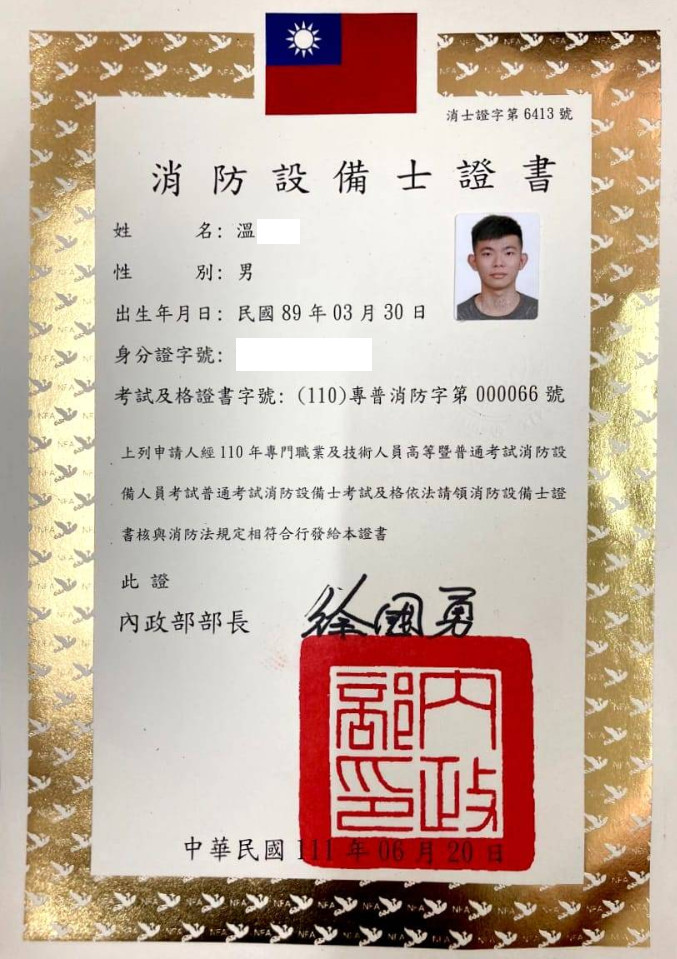 消士證字第 6413 號
消防設備士證書
姓 名：溫
性 別：男
出生年月日：民國 89 年 03 月 30 日
身分證字號：
考試及格證書字號：(110)專普消防字第 000066 號
上列申請人經 110 年專門職業及技術人員高等暨普通考試消防設
備人員考試普通考試消防設備士考試及格依法請領消防設備士證
書核與消防法規定相符合行發給本證書
此 證
內政部部長 徐國勇
內政部印
中華民國 111 年 06 月 20 日
NFA